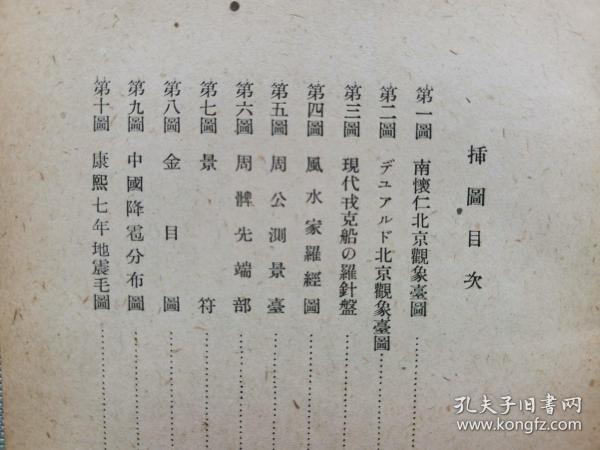 挿圖目次
第一圖 南懷仁北京觀象臺圖……………
第二圖 デユアルド北京觀象臺圖……………
第三圖 現代戎克船の羅針盤……………
第四圖 風水家羅經圖……………
第五圖 周公測景臺……………
第六圖 周髀先端部……………
第七圖 景符……………
第八圖 金目圖……………
第九圖 中國降雹分布圖……………
第十圖 康熙七年地震毛圖……………
孔夫子旧书网
www.kongfz.com